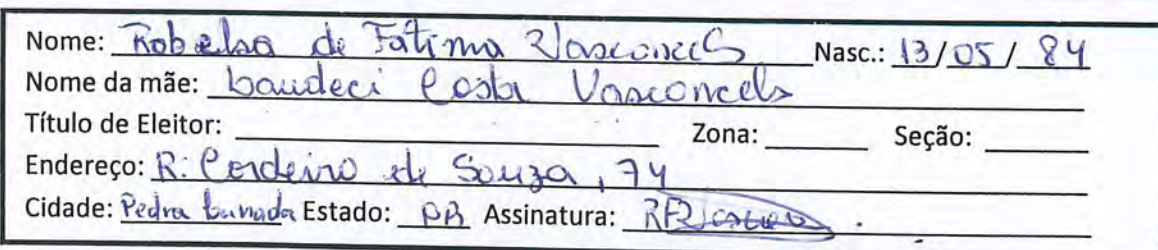 Nome: Robelsa de Fátima Vasconcels Nasc.: 13/05/84
Nome da mãe: Laudeci Costa Vasconcels
Título de Eleitor: Zona: Seção:
Endereço: R: Cordeiro de Souza, 74
Cidade: Pedra Estado: PB Assinatura: